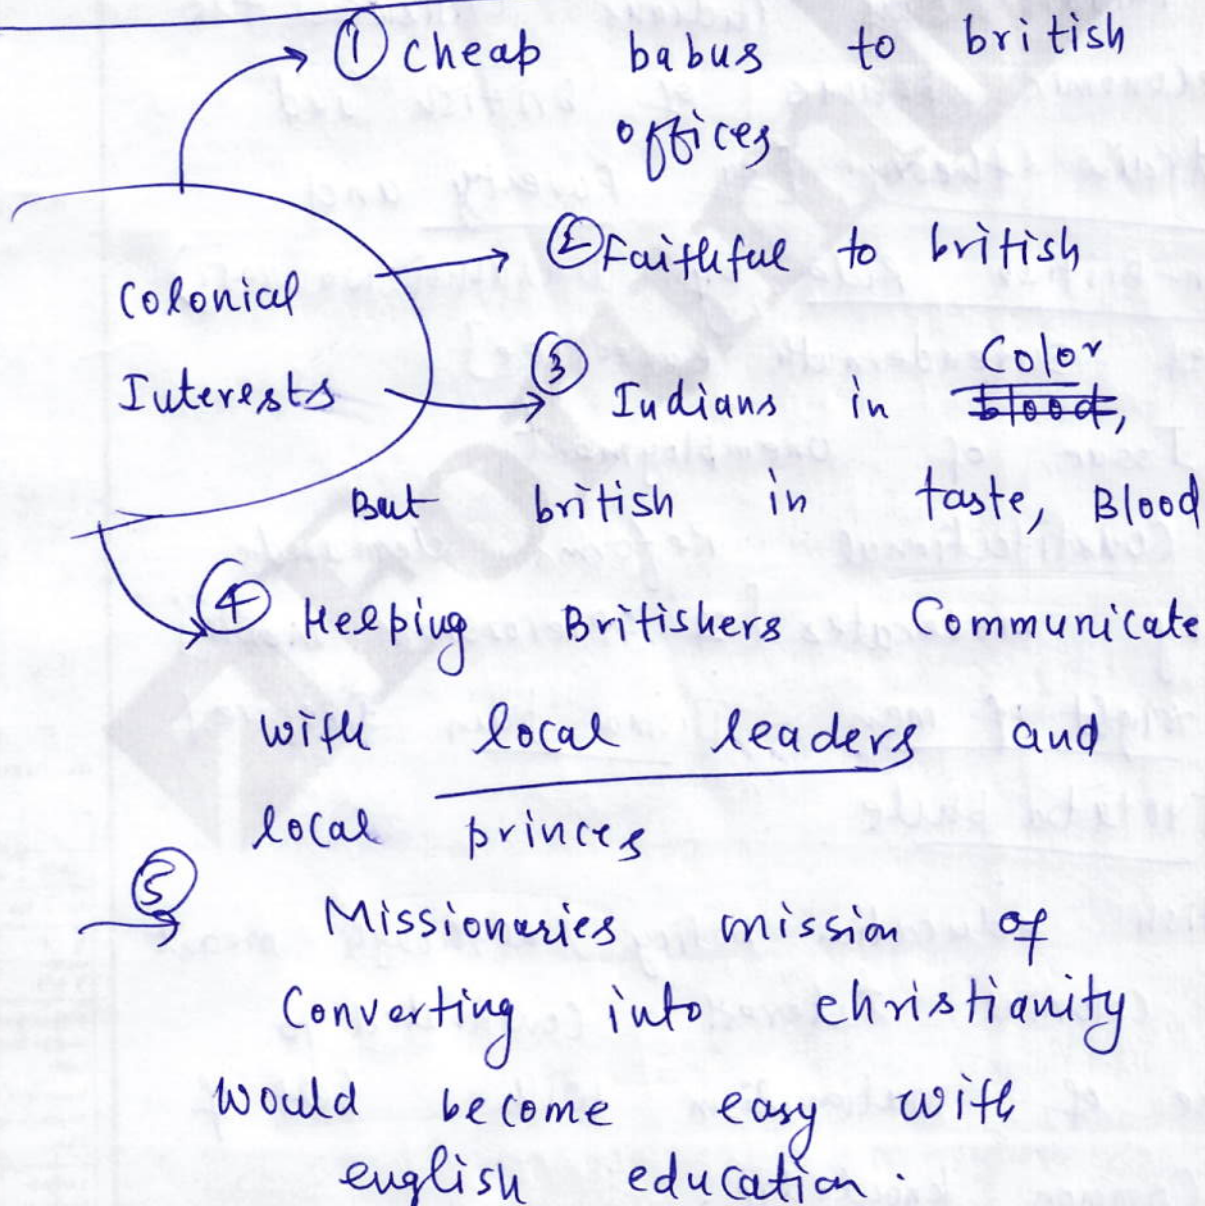 ① Cheap babus to british
offices
② Faithful to british
Colonial
Interests
③ Indians in Color
blood,
But british in taste, Blood
④ Helping Britishers Communicate
with local leaders and
local princes
⑤ Missionaries mission of
Converting into christianity
Would become easy with
english education.